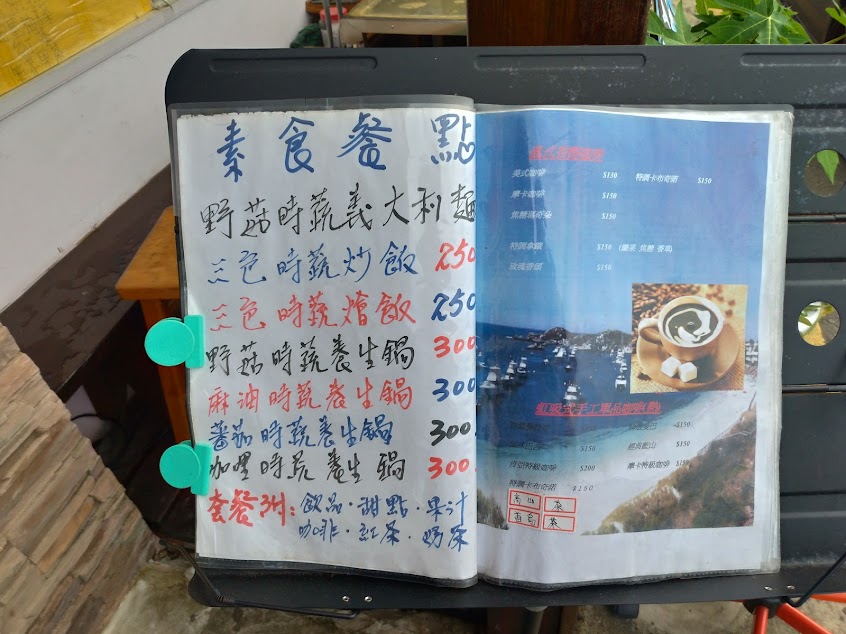 素食餐點
野菇時蔬義大利麵
三色時蔬炒飯 250
三色時蔬燴飯 250
野菇時蔬養生鍋 300
麻油時蔬养生鍋 300
蕃茄時蔬養生鍋 300
咖哩時蔬養生鍋 300
套餐附:飲品·甜點·果汁
咖啡·紅茶·奶茶
美式咖啡 $130 特調卡布奇諾 $150
摩卡咖啡 $150
焦糖瑪奇朵 $150
特調拿鐵 $150
玫瑰香頌 $150
虹吸式手工單品咖啡(熱)
$150
$150 經典藍山 $150
特級咖啡 $200 摩卡特級咖啡 $150
特調卡布奇諾 $160
高山 茶